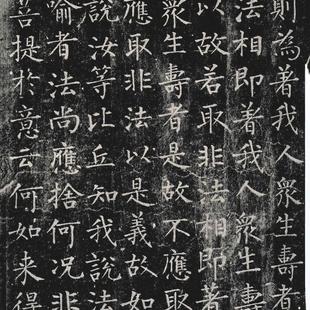 則為著我人衆生壽者
法相即著我人衆生壽
以故若取非法相即著
衆生壽者是故不應取
應取非法以是義故如
說汝等比丘知我說法
喻者法尚應捨何況非
菩提於意云何如来得